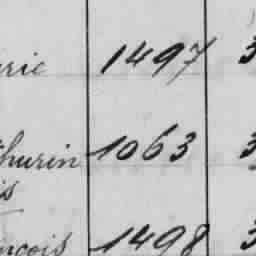 1497 3
thurin 1063 3
is
1498 3